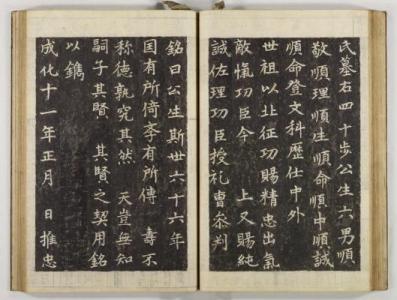 氏墓右四十步公生六男順
敬順理順生順命順中順誠
順命登文科歷仕中外
世祖以北征功賜精忠出氣
敵愾功臣今 上又賜純
誠佐理功臣授禮曹參判
銘曰公生斯世六十六年
国有所倚李有所傳 壽不
称德孰究其然 天豈無知
嗣子其賢 其賢之契用銘
以鐫
成化十一年正月 日推忠